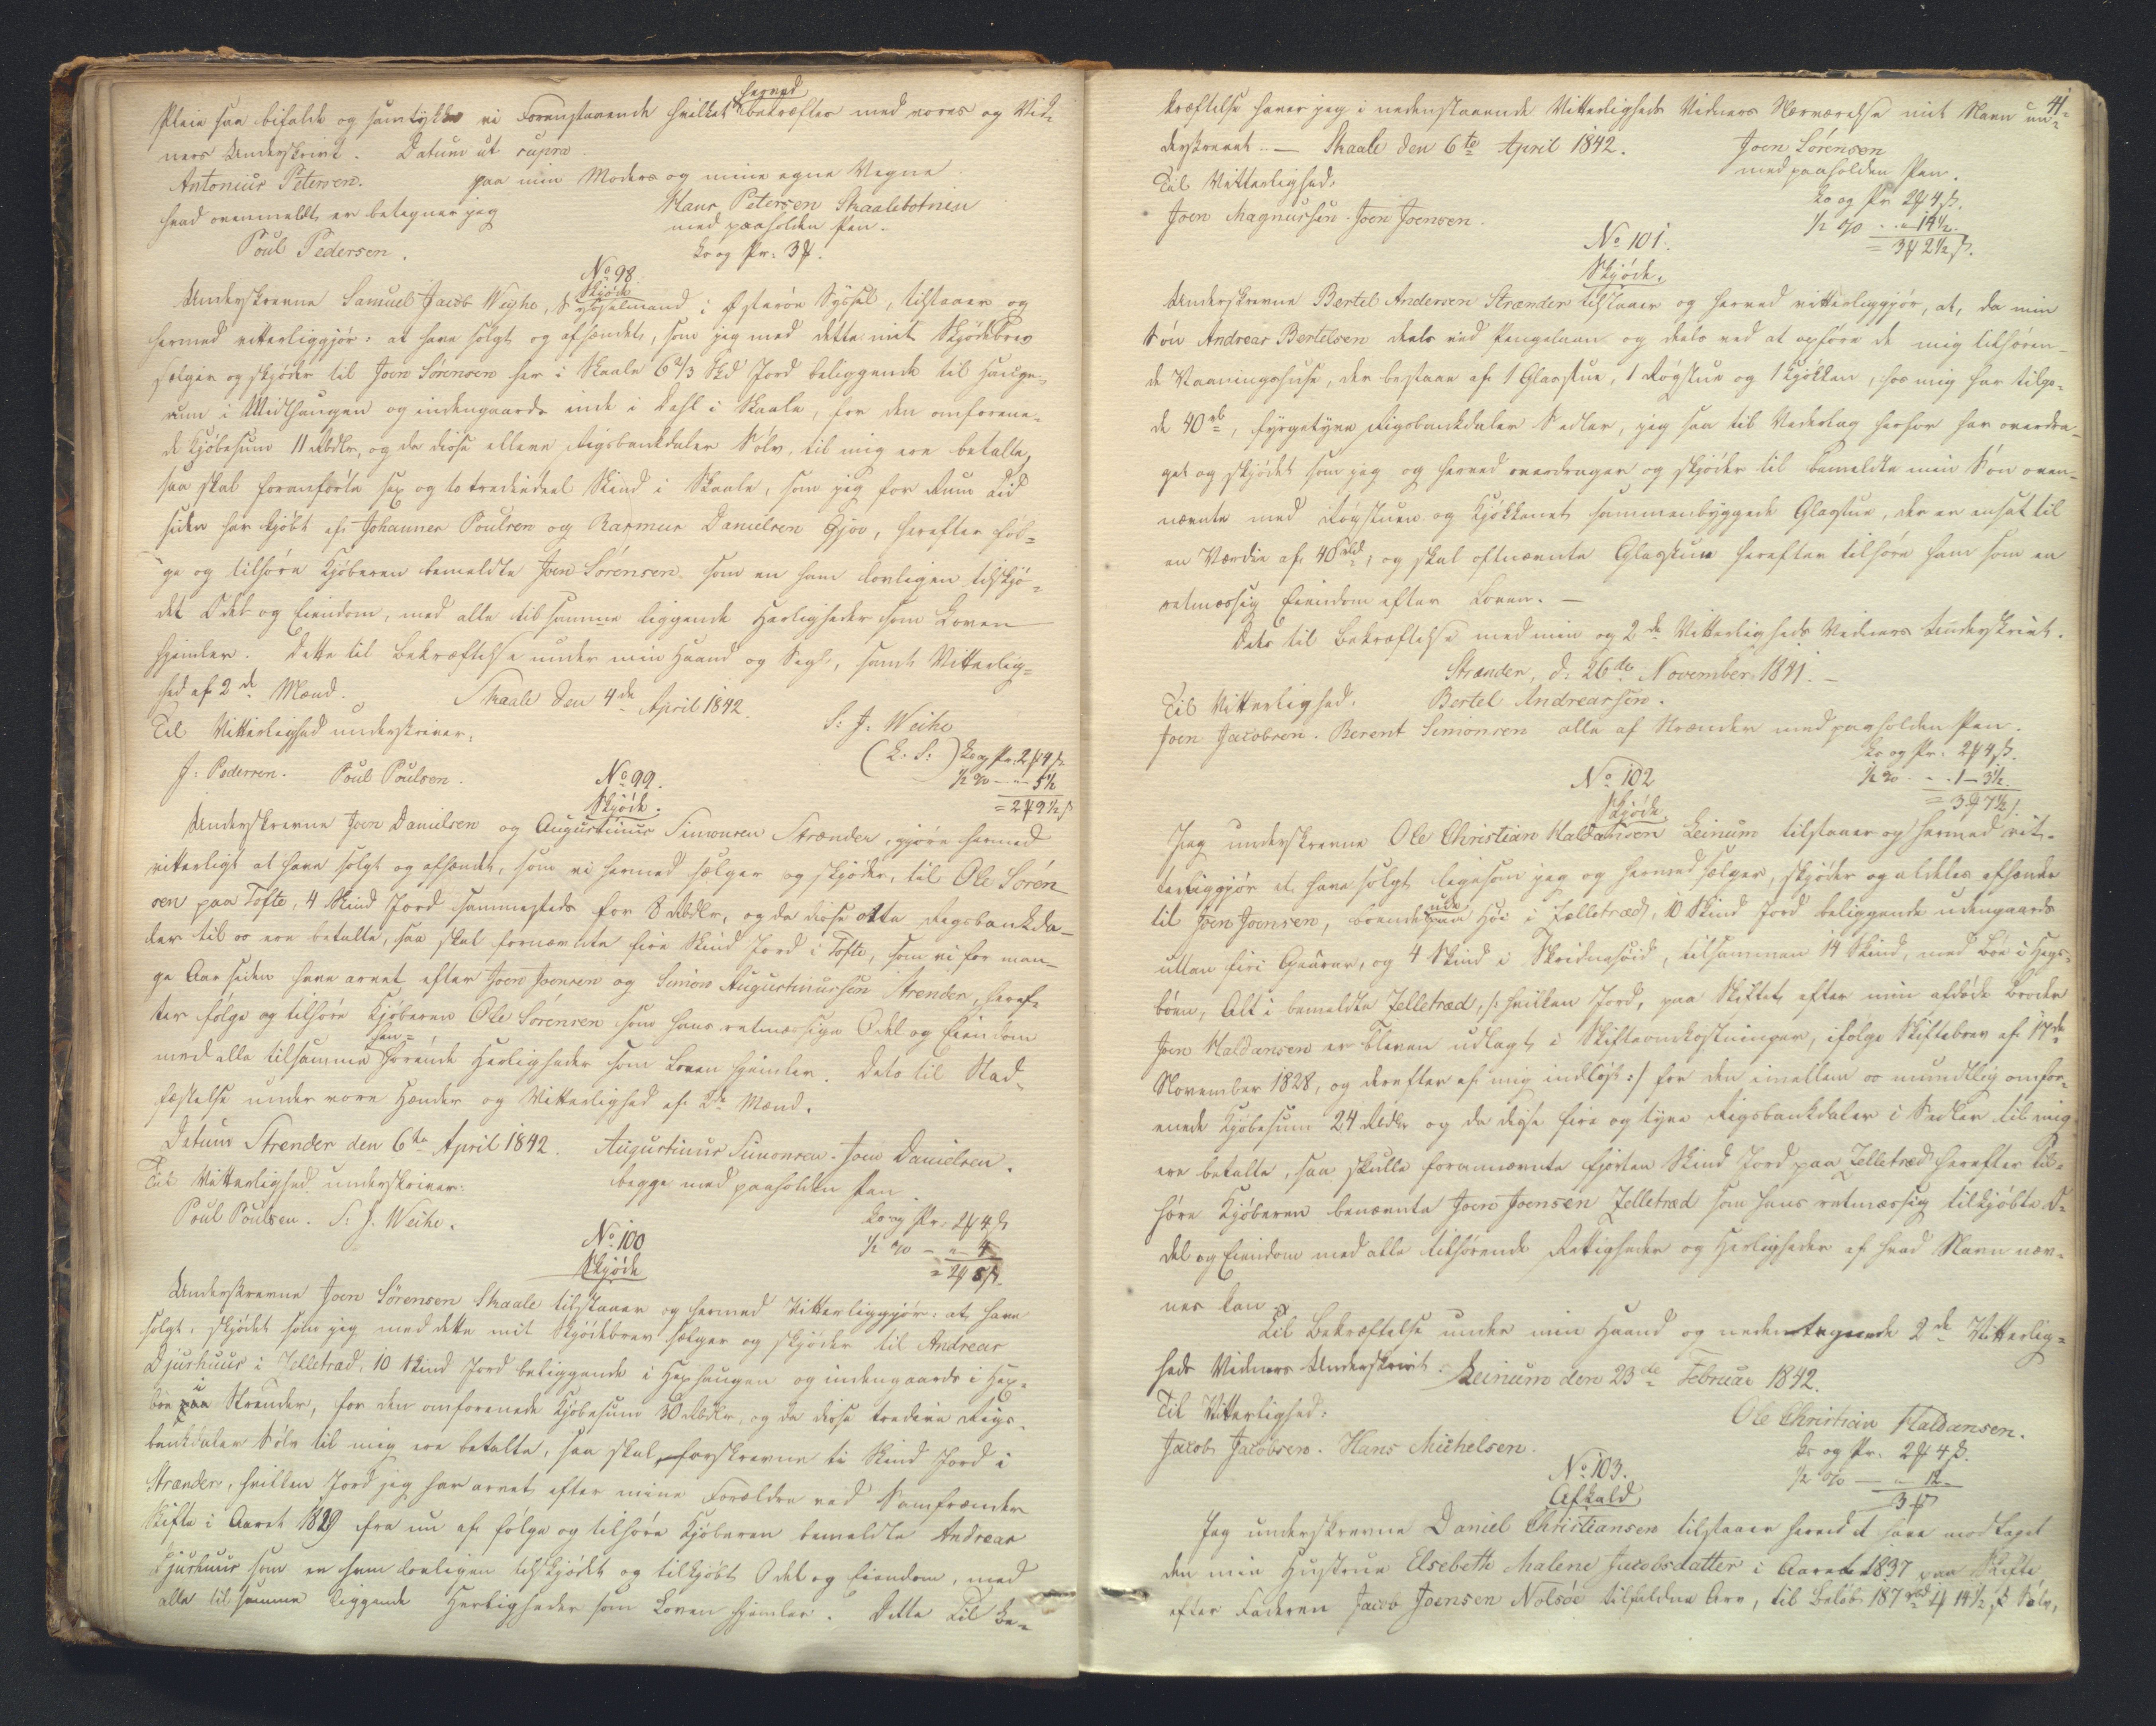 Pleie saa bifalde og samtykke vi Foranstaaende hvilket herved bekræfter med vores og Vid-
ners Underskrivt. Datum ut supra
Antonius Petersen. paa min Moders og mine egne Vegne
hvad ovenmeldt er betegner jeg Hans Petersen Skaalebotnen
Poul Pedersen. med paaholden Pen.
No 98
Skjøde
Underskrevne Samuel Jacob Weyhe, Sysselmand i Østerøe Syssel, tilstaaer og
hermed vitterliggjør: at have solgt og afhændet, som jeg med dette mit Skjødebrev
sælger og skjøder til Joen Sørensen her i Skaale 6 2/3 Skd Jord beliggende til Hauge-
rum i Midthaugen og indengaards inde i Dahl i Skaale, for den omforene-
de Kjøbesum 11 Rbdlr, og da disse elleve Rigsbankdaler Sølv til mig ere betalte,
saa skal foranførte sex og to trediedeel Skind i Skaale, som jeg for Rum Tid
siden har kjøbt af Johannes Poulsen og Rasmus Danielsen Gjov, herefter føl-
ge og tilhøre Kjøberen bemeldte Joen Sørensen som en ham lovligen tilskjø-
det Odel og Eiendom, med alle til samme liggende Herligheder som Loven
hjemler. Dette til Bekræftelse under min Haand og Segl, samt Vitterlig-
hed af 2de Mænd. Skaale den 4de April 1842.
Til Vitterlighed underskriver: S: J: Weihe
J: Pedersen. Poul Poulsen. (L. S:)
No 99.
Skjøde.
Underskrevne Joen Danielsen og Augustinus Simonsen Strænder, gjøre hermed
vitterligt at have solgt og afhændet, som vi hermed sælger og skjøder, til Ole Søren
sen paa Tofte, 4 Skind Jord sammesteds for 8 Rbdlr, og da disse otte Rigsbankda-
ler til os ere betalte, saa skal fornævnte fire Skind Jord i Tofte, som vi for man-
ge Aar siden have arvet efter Joen Joensen og Simon Augustinussen Strender, heref-
ter følge og tilhøre Kjøberen Ole Sørensen som hans retmæssige Odel og Eiendom
med alle tilsamme henhørende Herligheder som Loven hjemler. Dets til Stad-
fæstelse under vore Hænder og Vitterlighed af 2de Mænd.
Datum Strender den 6te April 1842. Augustinus Simonsen. Joen Danielsen.
Til Vitterlighed underskriver: begge med paaholden Pen
Poul Poulsen. S: J. Weihe.
No 100
Skjøde
Underskrevne Joen Sørensen Skaale tilstaaer og hermed Vitterliggjør: at have
solgt, skjødet som jeg med dette mit Skjødebrev sælger og skjøder til Andreas
Djurhuus i Zelletræd, 10 Skind Jord beliggende i Hexhaugen og indengaards i Hex-
bøe i Strender, for den omforenede Kjøbesum 30 Rbdlr, og da disse tredive Rigs-
bankdaler Sølv til mig ere betalte, saa skal forskrevne ti Skind Jord i
Strænder, hvilken Jord jeg har arvet efter mine Forældre ved Samfrænder
Skifte i Aaret 1829 fra nu af følge og tilhøre Kjøberen bemeldte Andreas
Djurhuus som en ham lovligen tilskjødet og tilkjøbt Odel og Eiendom, med
alle til samme liggende Herligheder som Loven hjemler. Dette til Be-
41
kræftelse haver jeg i nedenstaaende Vitterligheds Vidners Nærværelse mit Navn un-
derskrevet. — Skaale den 6te April 1842. Joen Sørensen
Til Vitterlighed: med paaholden Pen.
Joen Magnussen. Joen Joensen.
No 101.
Skjøde.
Underskrevne Bertel Andersen Strænder tilstaaer og herved vitterliggjør, at, da min
Søn Andreas Bertelsen deels ved Pengelaan og deels ved at opføre de mig tilhøren-
de Vaaningshuse, der bestaae af 1 Glasstue, 1 Røgstue og 1 Kjøkken, hos mig har tilgo-
de 40, fyrgetyve Rigsbankdaler Sedler, jeg saa til Vederlag herfor har overdra-
get og skjødet som jeg og herved overdrager og skjøder til bemeldte min Søn oven-
nævnte med Røgstuen og Kjøkkenet sammenbyggede Glasstue, der er ansat til
en Værdie af 40, og skal oftnævnte Glasstue herefter tilhøre ham som en
retmæssig Eiendom efter Loven. —
Dets til Bekræftelse med min og 2de Vitterligheds Vidners Underskrivt.
Strænder, d: 26de November 1841. —
Til Vitterlighed: Bertel Andreassen.
Joen Jacobsen. Berent Simonsen alle af Strænder med paaholden Pen.
No 102
Skjøde
Jeg underskrevne Ole Christian Haldansen Leinum tilstaaer og hermed vit-
terliggjør at have solgt ligesom jeg og hermed sælger, skjøder og aldeles afhænde
til Joen Joensen, boende ude paa Høi i Zelletræd, 10 Skind Jord beliggende udengaards
uttan firi Gaarar, og 4 Skind i Skridnasoid, tilsammen 14 Skind, med Bøe i Hegs-
bøen, Alt i bemeldte Zelletræd, /: hvilken Jord, paa Skiftet efter min afdøde Broder
Joen Haldansen er bleven udlagt i Skifteomkostninger, ifølge Skiftebrev af 17de
November 1828, og derefter af mig indløst :/ for den imellem os mundtlig omfor-
enede Kjøbesum 24 Rbdlr og da disse fire og tyve Rigsbankdaler i Sedler til mig
ere betalte, saa skulle forannævnte fjorten Skind Jord paa Zelletræd herefter til-
høre Kjøberen benævnte Joen Joensen Zelletræd som hans retmæssig tilkjøbte O-
del og Eiendom med alle tilhørende Rettigheder og Herligheder af hvad Navn næv-
nes kan.
Til Bekræftelse under min Haand og nedentegnede 2de Vitterlig-
heds Vidners Underskrivt. Leinum den 23de Februar 1842.
Til Vitterlighed: Ole Christian Haldansen.
Jacob Jacobsen. Hans Michelsen.
No 103.
Afkald
Jeg underskrevne Daniel Christiansen tilstaaer herved at have modtaget
den min Hustrue Elsebeth Malene Jacobsdatter i Aaret 1837 paa Skifte
efter Faderen Jacob Joensen Nolsøe tilfaldne Arv, til Beløb 187 Sølv,